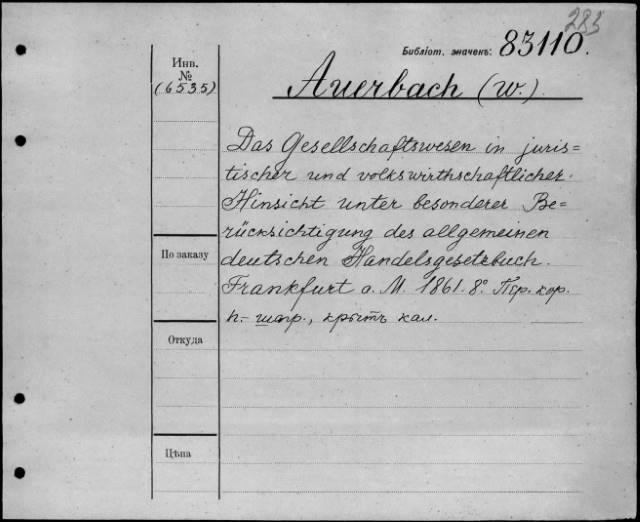 285
Библіот. значекъ: 83110.
Инв.
№
(6535)
Auerbach (W.).
Das Gesellschaftswesen in juris=
tischer und volkswirthschaftlicher
Hinsicht unter besonderer Be=
rücksichtigung des allgemeinen
По заказу
deutschen Handelsgesetzbuch.
Frankfurt a. M. 1861. 8º. кор.
крытъ кал.
Откуда
Цѣна